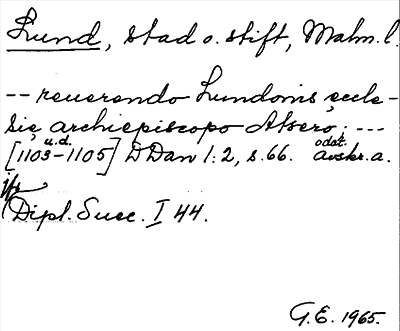 Lund, stad o. stift, Malm. l.
-- reuerendo Lundonis ęccle-
się archiepiscopo Atsero; ---
u.d. odat.
[1103-1105] DDan 1:2, s.66. avskr. a.
jfr
(Dipl. Suec. I 44.
G.E. 1965.